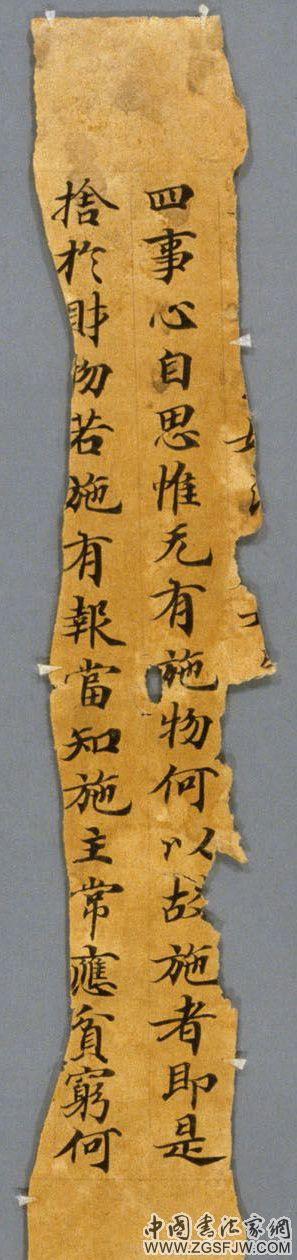 四事心自思惟无有施物何以故施者即是
捨於財物若施有報當知施主常應貧窮何
中国书法家网
WWW.ZGSFJW.COM